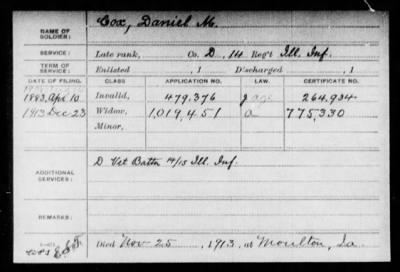 NAME OF SOLDIER: Cox, Daniel M.
SERVICE: Late rank, Co. D, 14 Reg't Ill. Inf.
TERM OF SERVICE: Enlisted , 1 Discharged , 1
DATE OF FILING. CLASS APPLICATION NO. LAW. CERTIFICATE NO.
1883, Apr 10 Invalid, 479,376 264,934
1913 Dec 23 Widow, 1,019,451 a 775,330
Minor,
ADDITIONAL SERVICES: D Vet Battn 14/15 Ill. Inf.
REMARKS:
Died Nov 25, 1913, at Moulton, Ia.